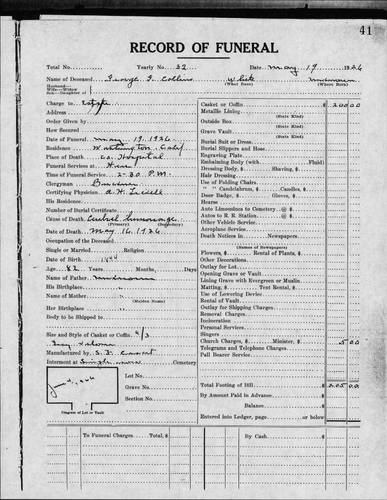 41
RECORD OF FUNERAL
Total No. Yearly No. 32 Date May 19 1926
Name of Deceased George F. Collins White unknown
Husband— (What Race) (Where Born)
Wife—Widow
Son—Daughter of
Charge to Estate
Address
Order Given by
How Secured
Date of Funeral May 19, 1926
Residence Washington Calif.
Place of Death Co. Hospital
Funeral Services at Here
Time of Funeral Service 2-30 P.M.
Clergyman
Certifying Physician
His Residence
Number of Burial Certificate
Cause of Death Cerebral
(Primary) (Secondary)
Date of Death May 16, 1926
Occupation of the Deceased
Single or Married Religion
Date of Birth 1844
Age 82 Years, Months, Days
Name of Father unknown
His Birthplace "
Name of Mother "
(Maiden Name)
Her Birthplace "
Body to be Shipped to
Size and Style of Casket or Coffin 6/3
Manufactured by
Interment at Cemetery
Lot No.
Grave No.
Section No.
Diagram of Lot or Vault
Casket or Coffin $ 200 00
Metallic Lining
(State Kind)
Outside Box
(State Kind)
Grave Vault
(State Kind)
Burial Suit or Dress
Burial Slippers and Hose
Engraving Plate
Embalming Body (with Fluid)
Dressing Body, $ Shaving, $
Hair Dressing
Use of Folding Chairs
" " Candelabrum, $ Candles, $
Door Badge, $ Gloves, $
Hearse
Auto Limousines to Cemetery @ $
Autos to R. R. Station @ $
Other Vehicle Service
Aeroplane Service
Death Notices in Newspapers
(Names of Newspapers)
Flowers, $ Rental of Plants, $
Other Decorations
Outlay for Lot
Opening Grave or Vault
Lining Grave with Evergreen or Muslin
Matting, $ Tent Rental, $
Use of Lowering Device
Rental of Vault
Outlay for Shipping Charges
Removal Charges
Incineration
Personal Services
Singers
Church Charges, $ Minister, $ 5 00
Telegrams and Telephone Charges
Pall Bearer Service
Total Footing of Bill $ 205 00
By Amount Paid in Advance
Balance
Entered into Ledger, page or below
To Funeral Charges Total, $ By Cash $